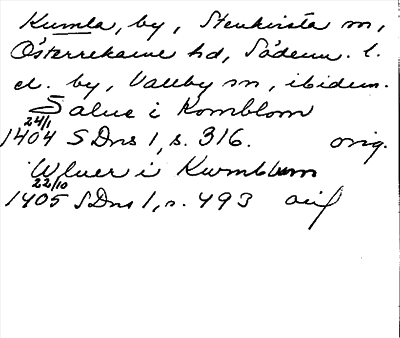 Kumla, by, Stenkvista sn,
Österrekarne hd, Söderm. l.
el. by, Vallby sn, ibidem.
Salue i Komblom
24/1
1404 SDns 1, s. 316. orig.
Wluer i Kumblum
22/10
1405 SDns 1, s. 493 orig